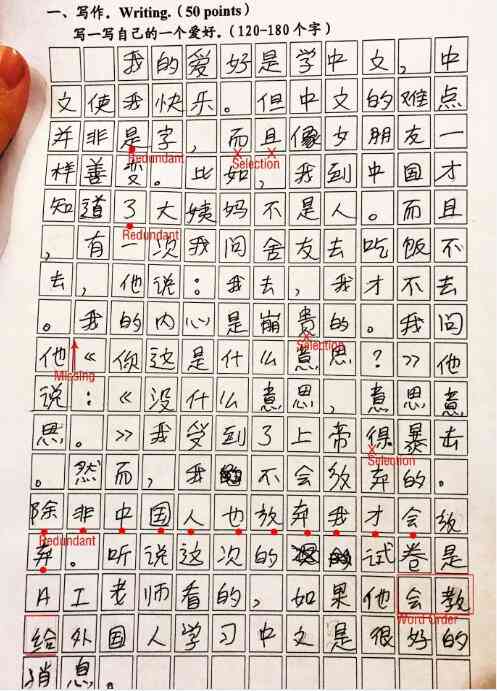 一、写作。Writing.(50 points)
写一写自己的一个爱好。(120-180个字)
我的爱好是学中文，中
文使我快乐。但中文的难点
并非是字，而且像女朋友一
Redundant Selection
样善变。比如，我到中国才
知道了大姨妈不是人。而且
Redundant
，有一次我问舍友去吃饭不
去，他说：我去，我才不去
。我的内心是崩贵的。我问
Selection
他《你这是什么意思？》他
Missing
说：《没什么意思，意思意
思。》我受到了上帝得暴击
Selection
。然而，我不会放弃的。
除非中国人也放弃我才会放
Redundant
弃。听说这次的试卷是
AI老师看的，如果他会教
Word Order
给外国人学习中文是很好的
消息。